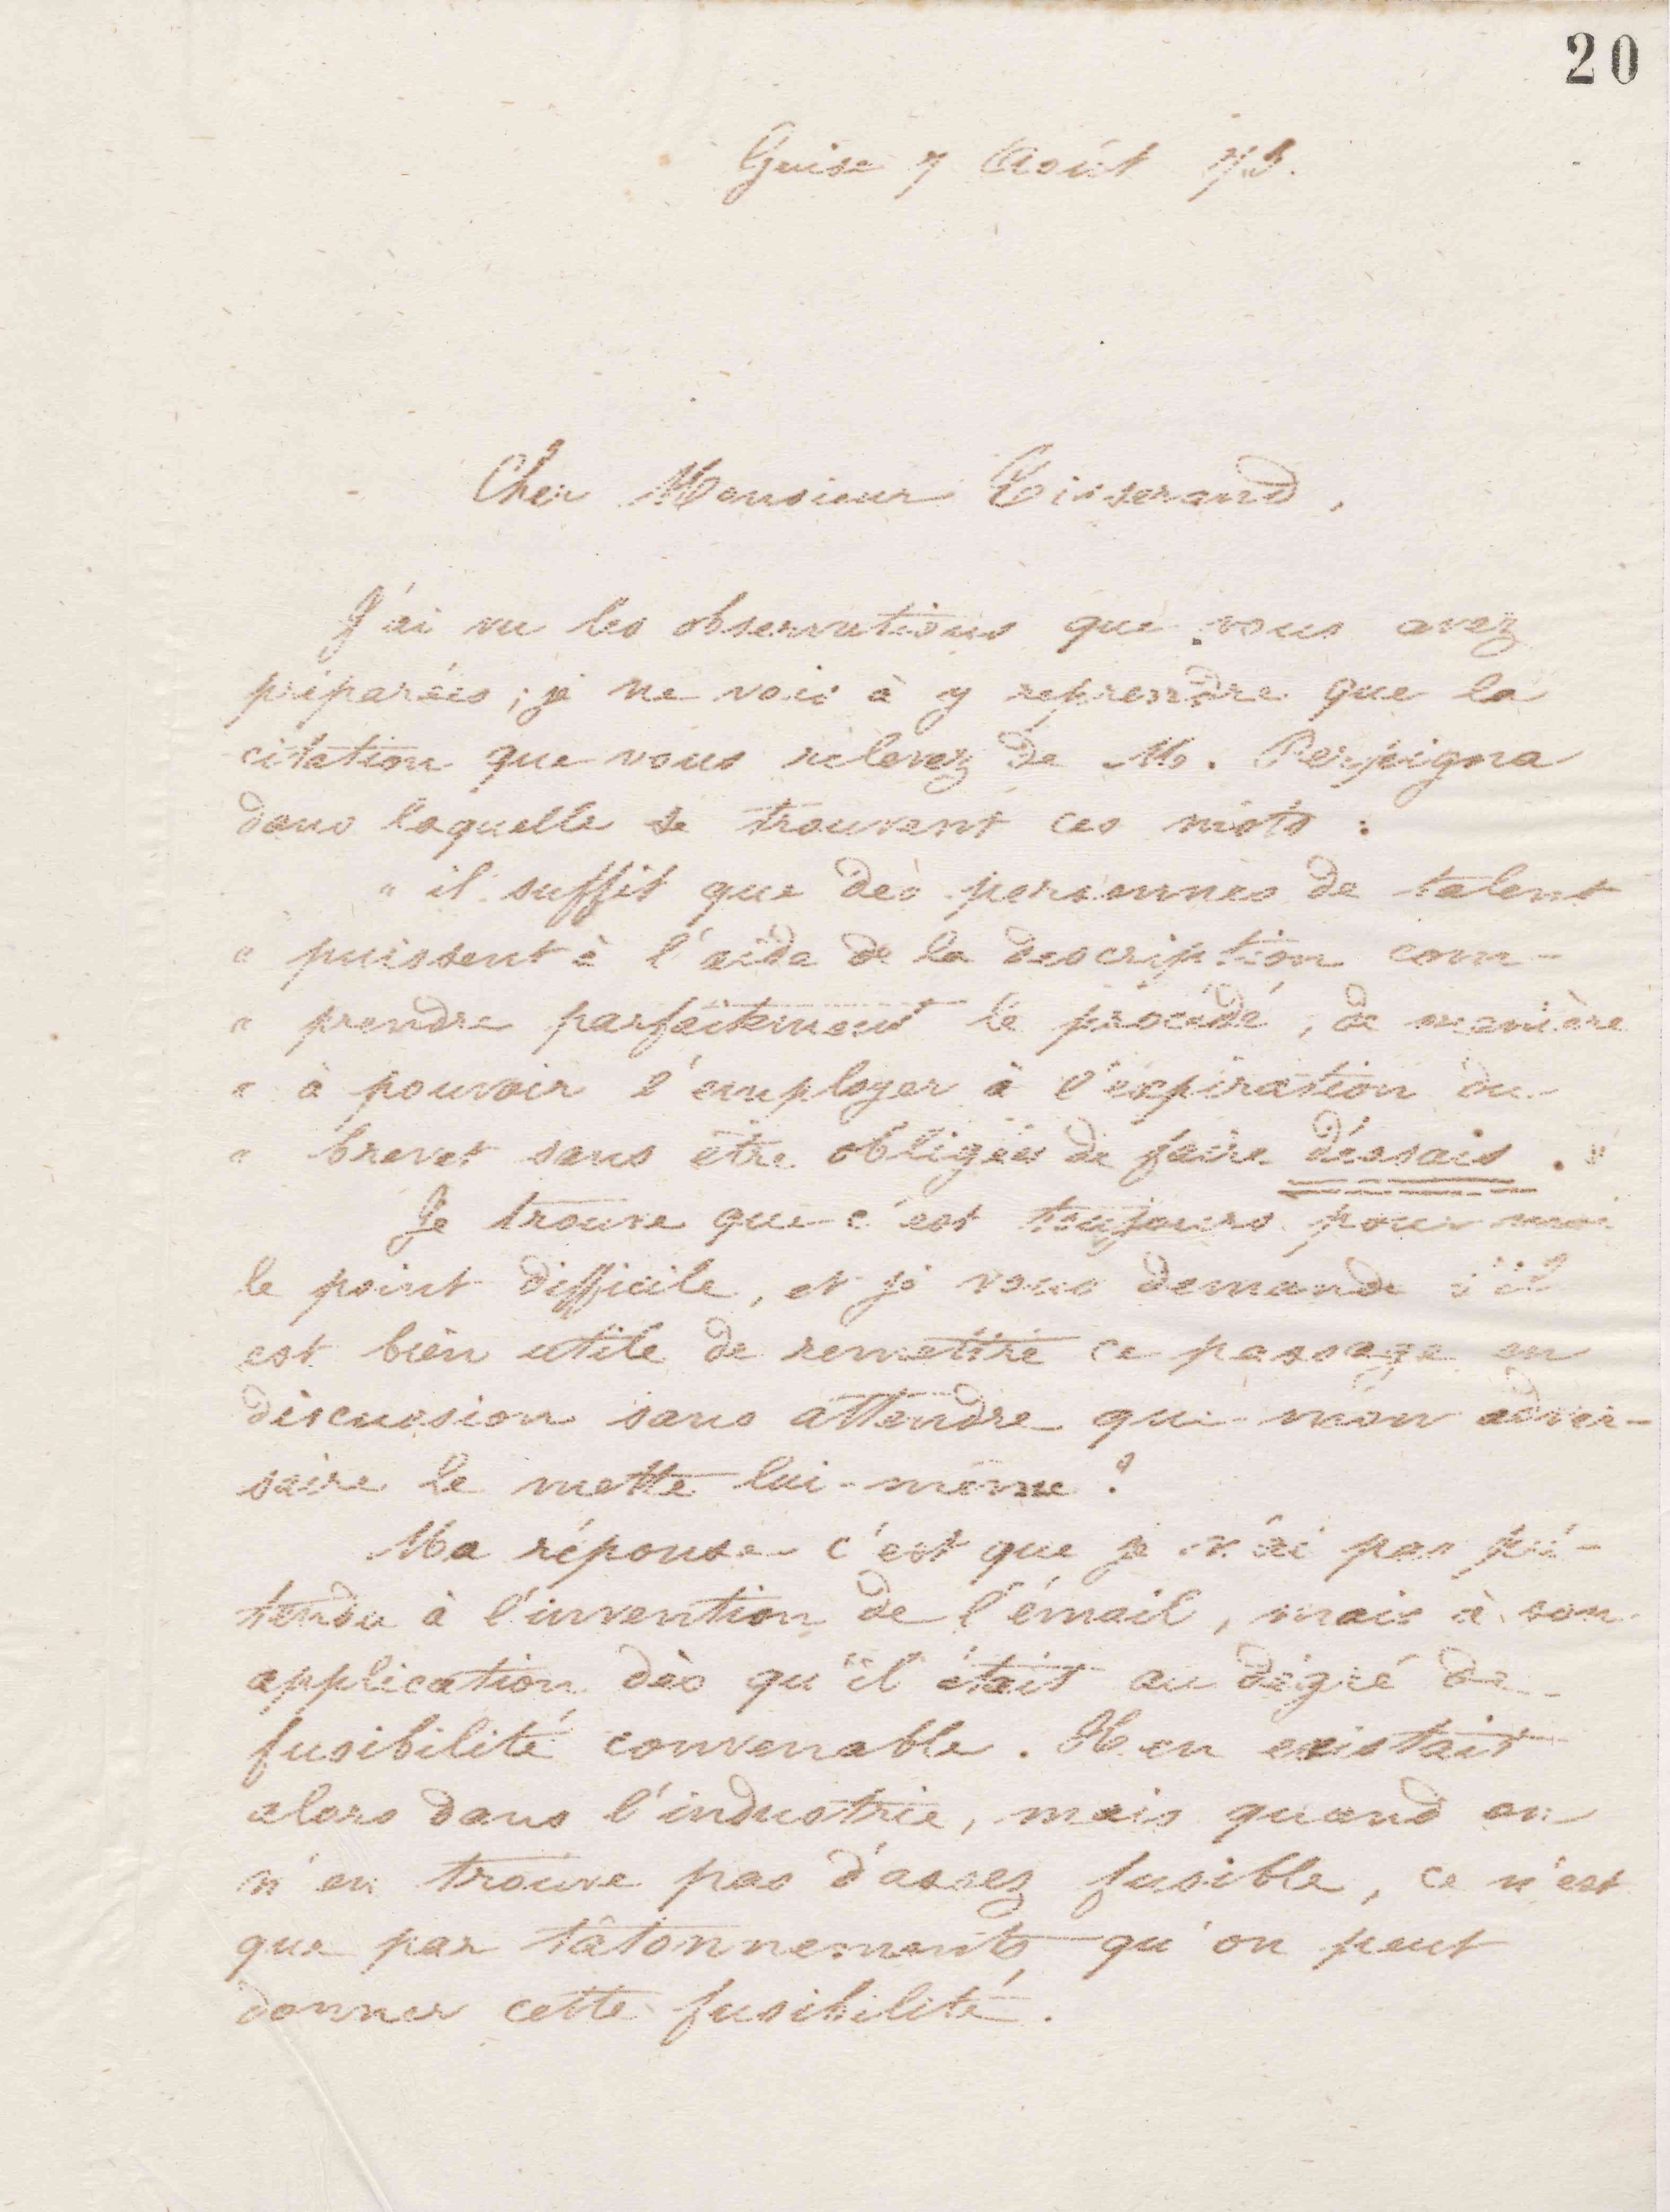 20
Guise 7 Août 73.
Cher Monsieur Tisserand,
J'ai vu les observations que vous avez
préparées ; je ne vois à y reprendre que la
citation que vous relevez de M. Perpigna
dans laquelle se trouvent ces mots :
" il suffit que des personnes de talent
" puissent à l'aide de la description com-
" prendre parfaitement le procédé, de manière
" à pouvoir l'employer à l'expiration du
" brevet sans être obligées de faire d'essais . "
Je trouve que c'est toujours pour moi
le point difficile, et je vous demande s'il
est bien utile de remettre ce passage en
discussion sans attendre que mon adver-
saire le mette lui-même ?
Ma réponse c'est que je n'ai pas pré-
tendu à l'invention de l'émail, mais à son
application dès qu'il était au dégré de
fusibilité convenable. Il en existait
alors dans l'industrie, mais quand on
n'en trouve pas d'assez fusible, ce n'est
que par tâtonnements qu'on peut
donner cette fusibilité.